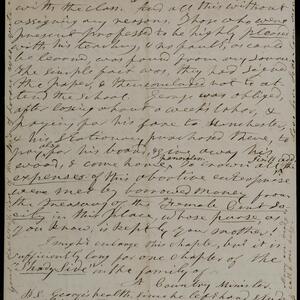 with the class. And all this without
assigning any reasons. Those who were
present professed to be highly pleased
with his teaching, & no fault, as could
be learned was found from any source
The simple fact was, they had seen
the paper, & then concluded not to at-
tend the school. George was obliged,
after losing about a weeks labor, &
paying for his fare to Manchester,
& his stationery purchased there, to
pay for his board, & give away his
wood, & come home to crown all the
expenses of this abortive enterprise
were met by borrowed money from
the treasury of the Female Cent So-
ciety in this place, whose purse, as
you know, is kept by your mother!
I might enlarge this chapter, but it is
sufficiently long for one chapter of the
"Shady Side" in the family of
A Country Minister.
P.S. George's health